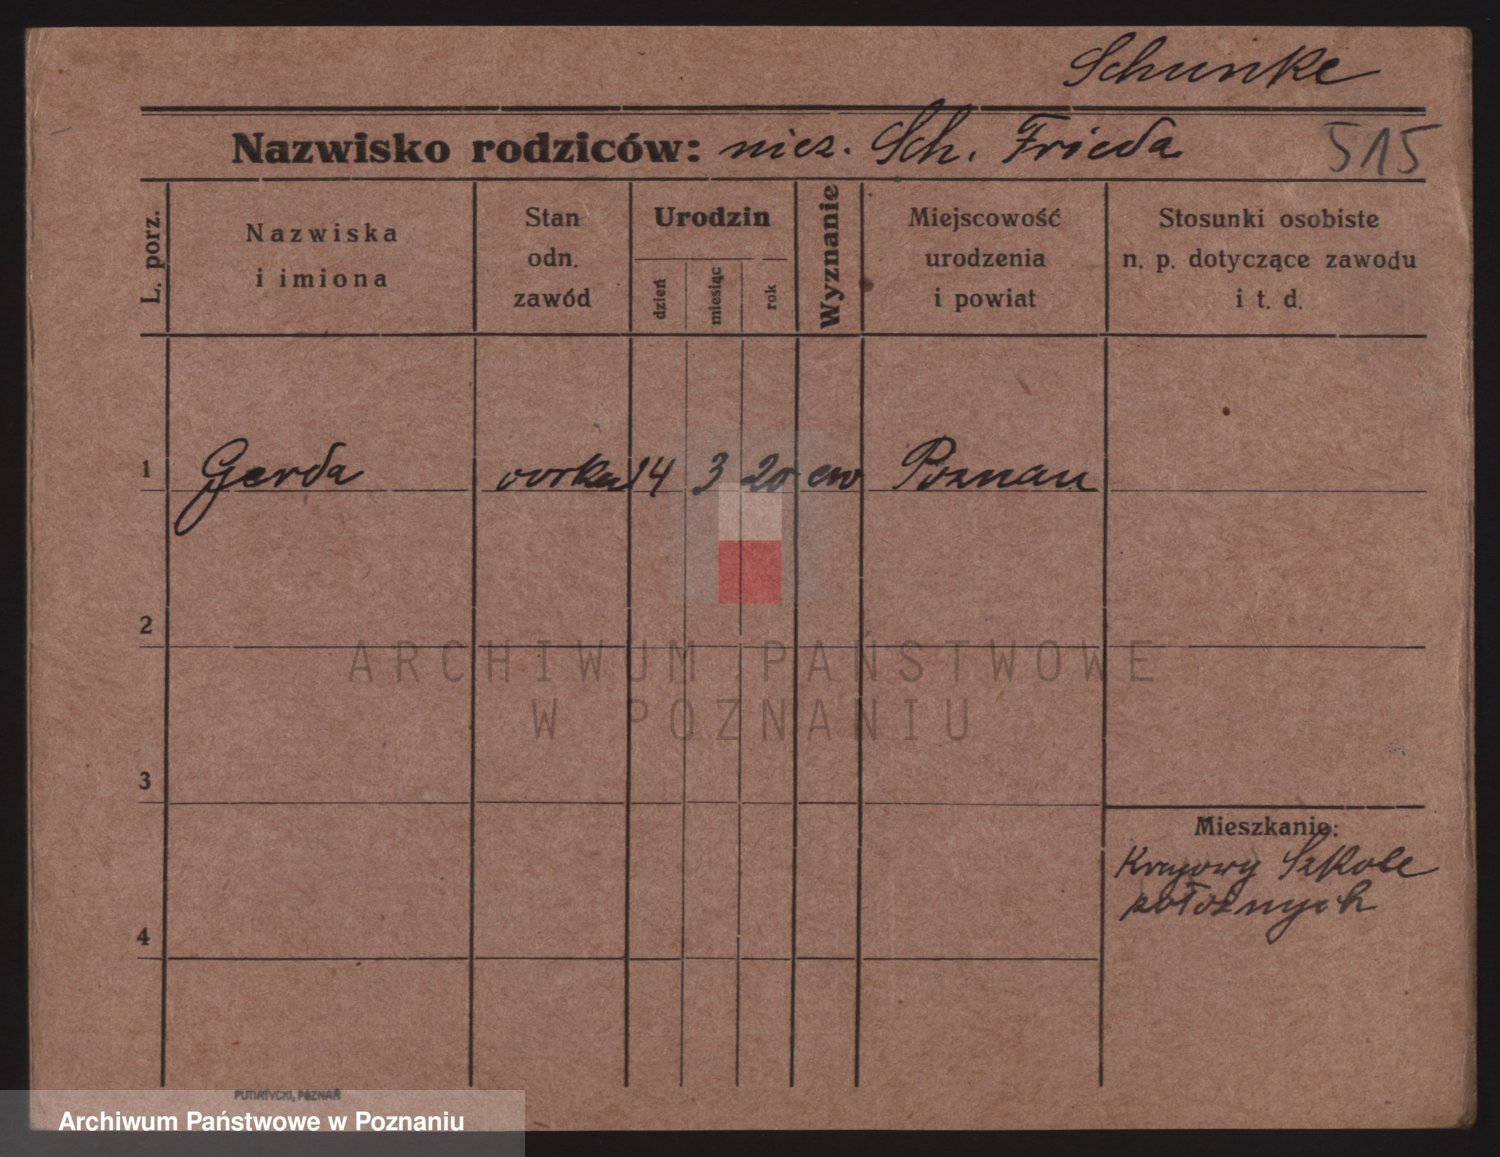 Schunke
Nazwisko rodziców: niez. Sch. Frieda 515
L. porz.
Nazwiska
i imiona
Stan
odn.
zawód
Urodzin
dzień
miesiąc
rok
Wyznanie
Miejscowość
urodzenia
i powiat
Stosunki osobiste
n. p. dotyczące zawodu
i t. d.
1 Gerda 14 3 20 ew Poznań
2
3
4
Mieszkanie:
Krajowy Szkole
położnych
PUTIATYCKI, POZNAŃ
ARCHIWUM PAŃSTWOWE
W POZNANIU
Archiwum Państwowe w Poznaniu